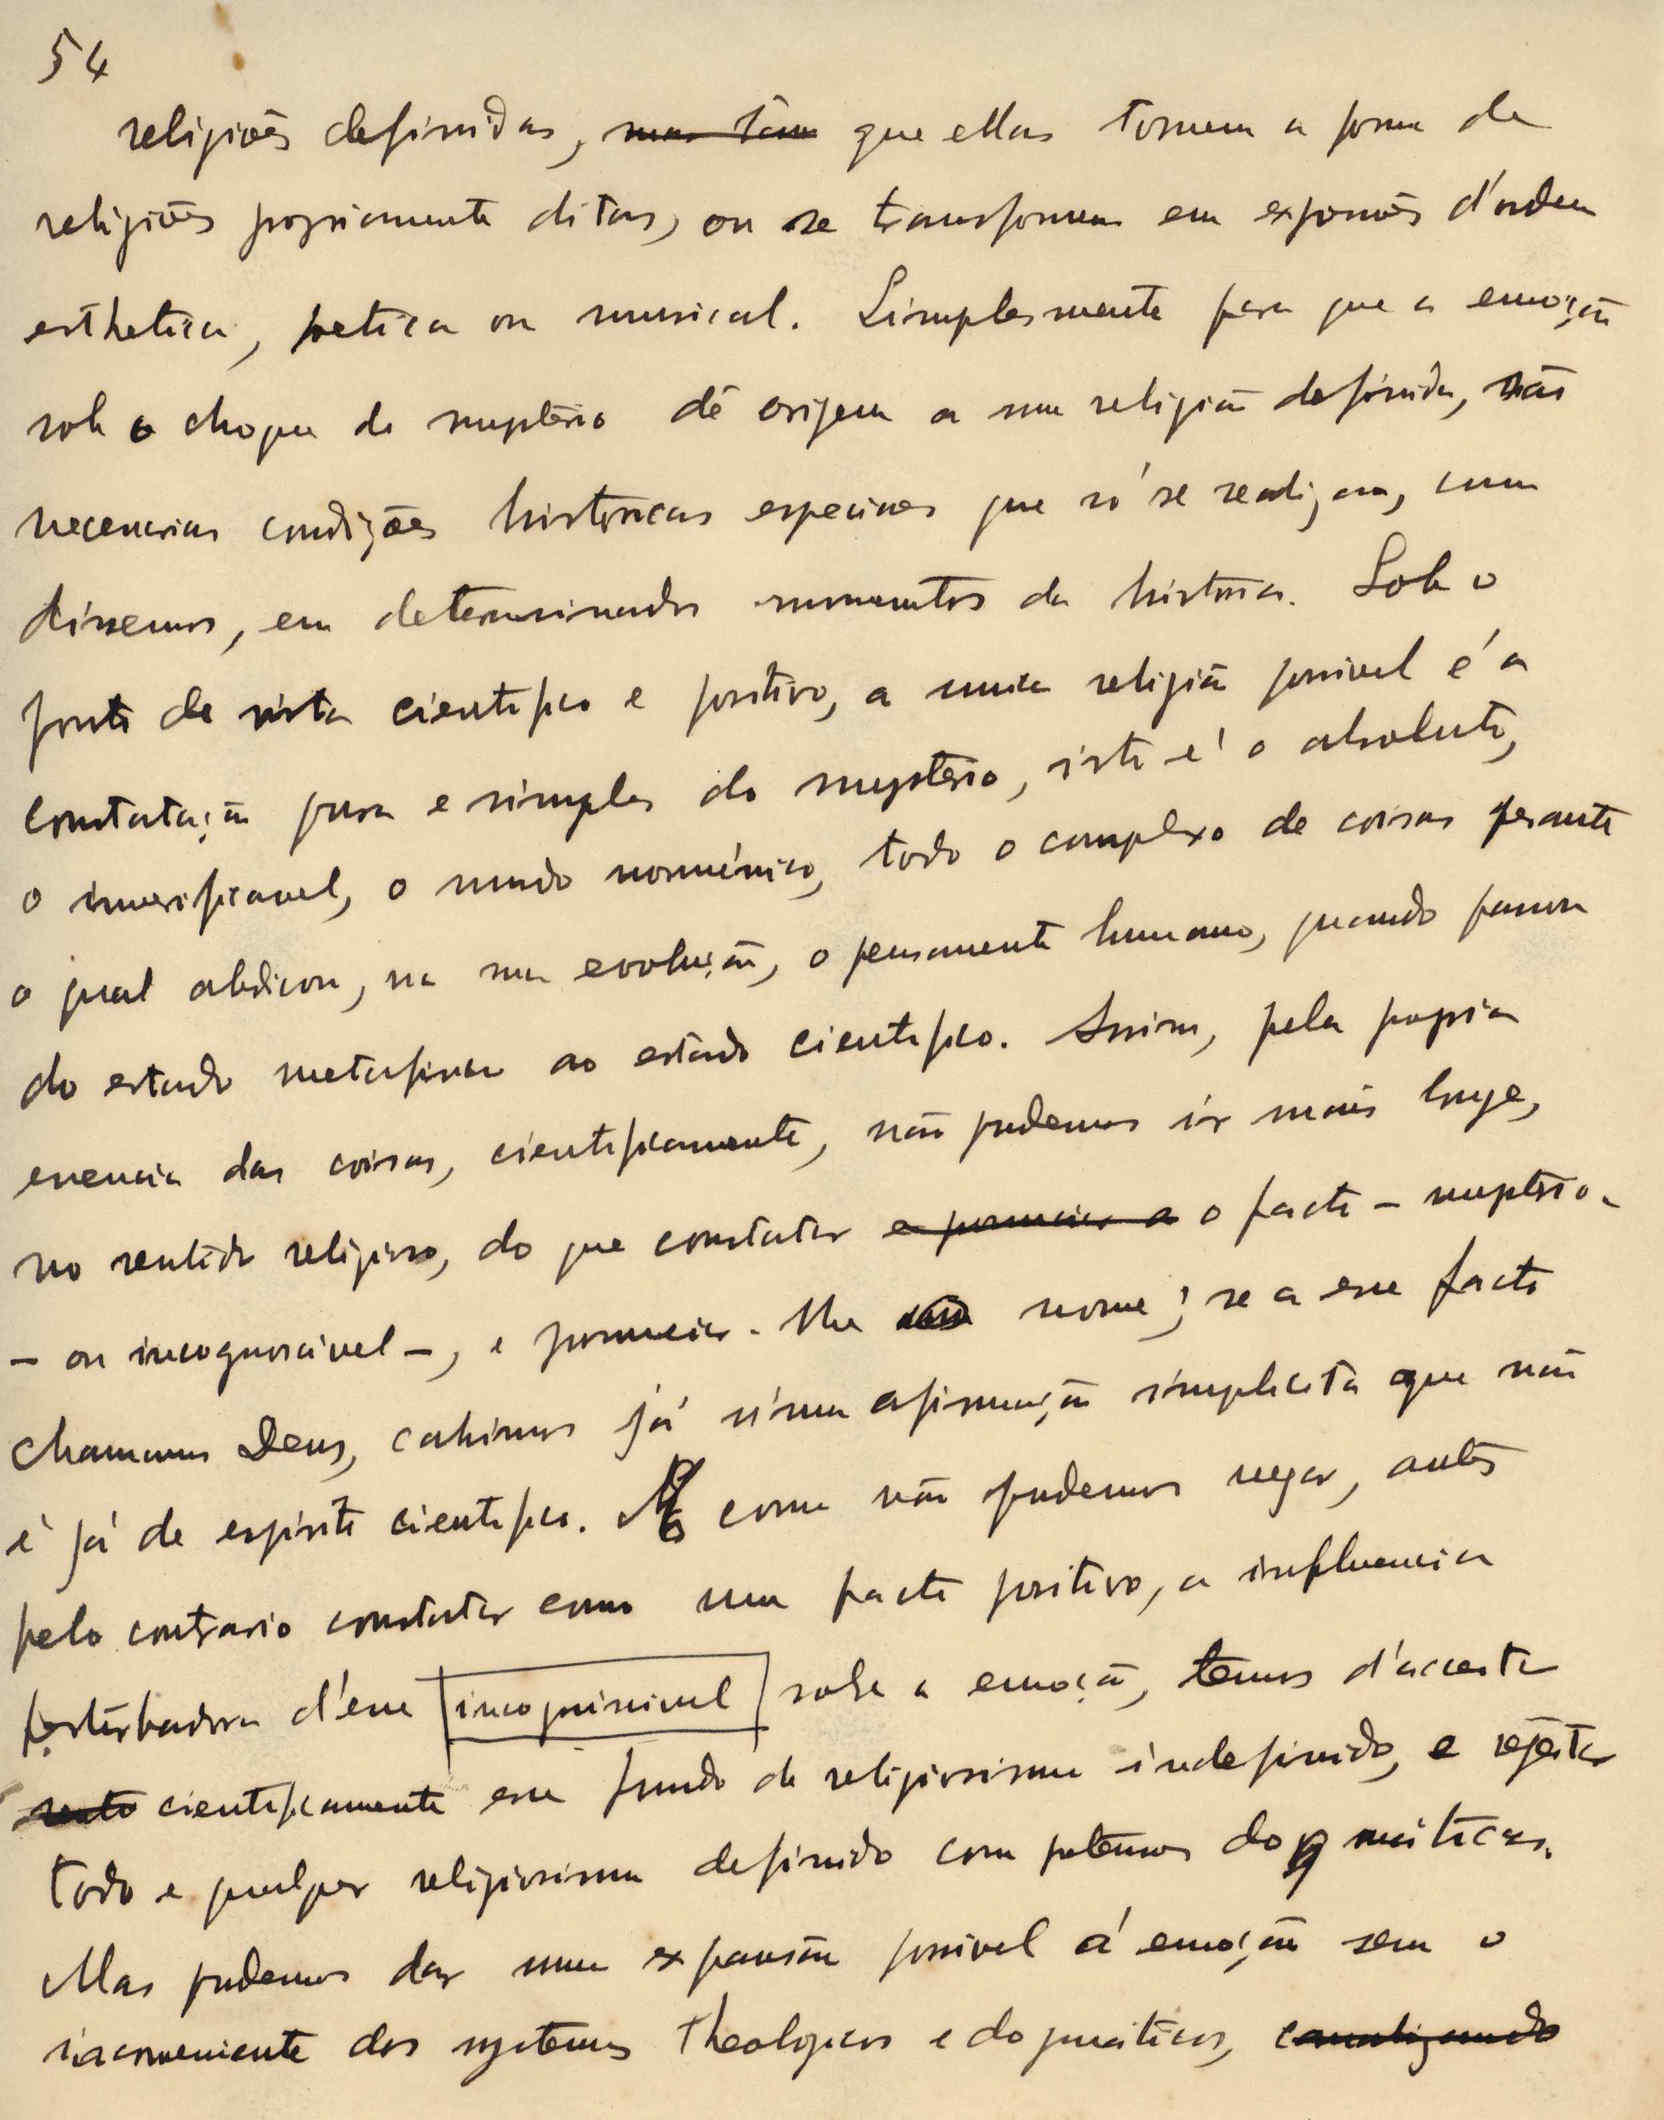 54
religiões definidas, que ellas tomem a forma de
religiões propriamente ditas, ou se transformem em expansões d'ordem
esthetica, poetica ou musical. Simplesmente para que a emoção
sob o choque do mysterio dê origem a uma religião definida, são
necessarias condições historicas especiaes que só se realizam, como
dissemos, em determinados momentos da historia. Sob o
ponto de vista cientifico e positivo, a unica religião possivel é a
constatação pura e simples do mysterio, isto é o absoluto,
o inverificavel, o mundo noumênico, todo o complexo de coisas perante
o qual abdicou, na sua evolução, o pensamento humano, quando passou
do estado metafisico ao estado cientifico. Assim, pela propria
essencia das coisas, cientificamente, não podemos ir mais longe,
no sentido religioso, do que constatar o facto – mysterio –
– ou incognoscivel –, e nome; se a esse facto
chamamos Deus, cahimos já n'uma afirmação simplicista que não
é já de espirito cientifico. como não podemos negar, antes
pelo contrario constatar como um facto positivo, a influencia
perturbadora d'esse incogniscivel sobre a emoção, temos d'acceitar
cientificamente esse fundo de religiosismo indefinido, e rejeitar
todo e qualquer religiosismo definido com dogmáticas.
Mas podemos dar uma expansão possivel á emoção sem o
inconveniente dos systemas theologicos e dogmáticos, canalizando